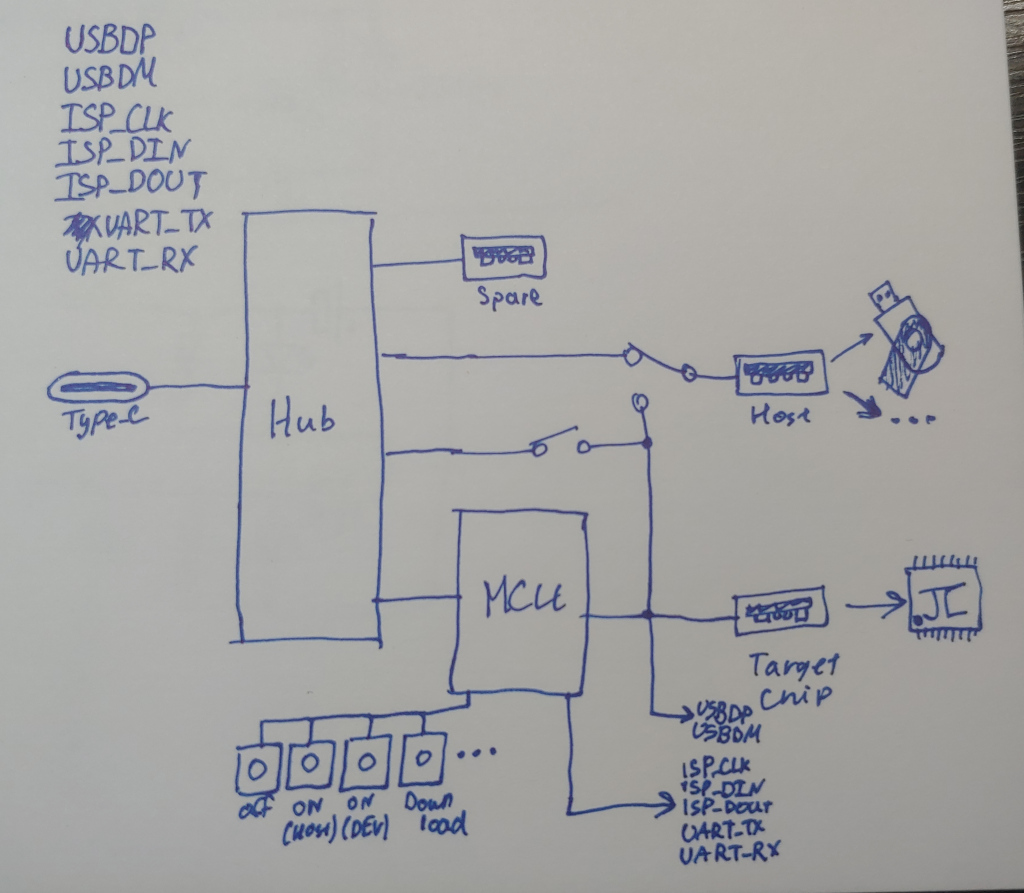 USBDP
USBDM
ISP_CLK
ISP_DIN
ISP_DOUT
UART_TX
UART_RX
Spare
Type-C
Hub
Host
...
MCU
JC
Target
Chip
USBDP
USBDM
...
OFF
ON
(HOST)
ON
(DEV)
Down
load
ISP_CLK
ISP_DIN
ISP_DOUT
UART_TX
UART_RX